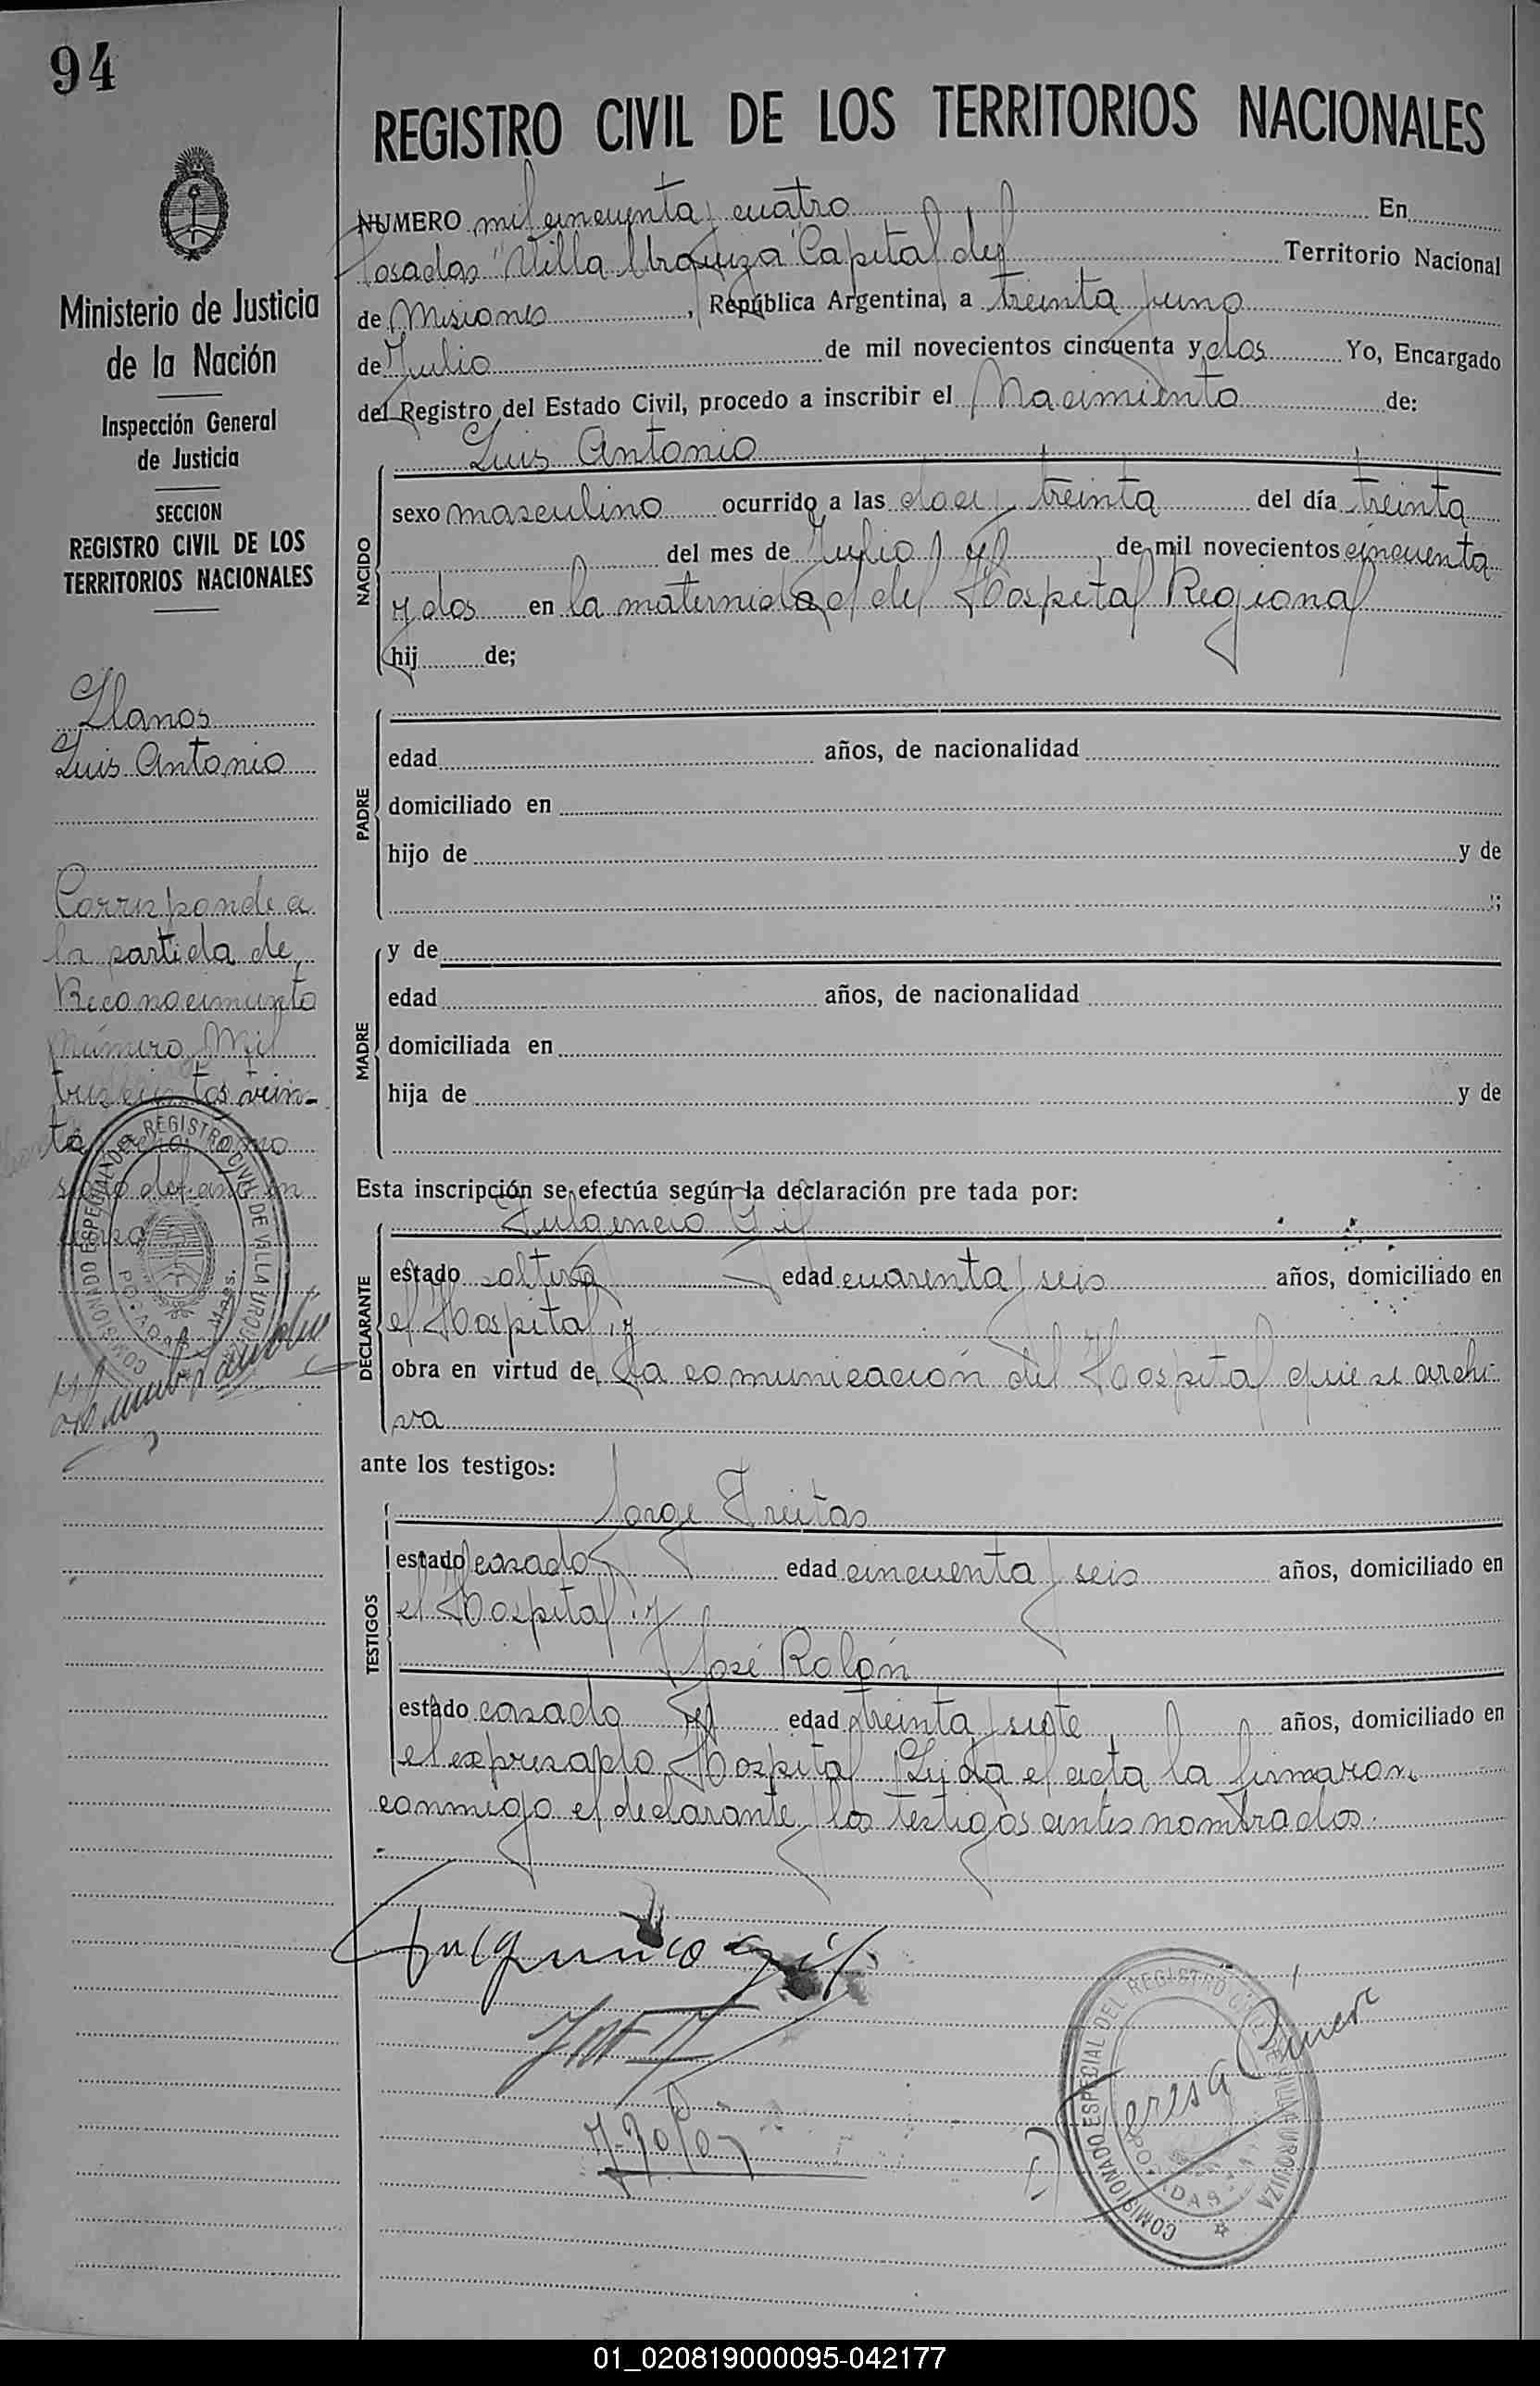 94
REGISTRO CIVIL DE LOS TERRITORIOS NACIONALES
Ministerio de Justicia
de la Nación
Inspección General
de Justicia
SECCION
REGISTRO CIVIL DE LOS
TERRITORIOS NACIONALES
Llanos
Luis Antonio
Corresponde a
la partida de
Reconocimiento
Número Mil
trescientos trein-
ta
NUMERO mil cincuenta y cuatro En
Posadas "Villa Urquiza" Capital del Territorio Nacional
de Misiones, República Argentina, a treinta y uno
de Julio de mil novecientos cincuenta y dos Yo, Encargado
del Registro del Estado Civil, procedo a inscribir el Nacimiento de:
NACIDO
Luis Antonio
sexo masculino ocurrido a las doce y treinta del día treinta
del mes de Julio de mil novecientos cincuenta
y dos en la maternidad del Hospital Regional
hij de;
PADRE
edad años, de nacionalidad
domiciliado en
hijo de y de
;
MADRE
y de
edad años, de nacionalidad
domiciliada en
hija de y de
Esta inscripción se efectúa según la declaración pre tada por:
DECLARANTE
Fulgencio Gil
estado soltero edad cuarenta y seis años, domiciliado en
el Hospital, y
obra en virtud de la comunicación del Hospital que se archi-
va
ante los testigos:
TESTIGOS
Jorge Freitas
estado casado edad cincuenta y seis años, domiciliado en
el Hospital, y
José Rolón
estado casado edad treinta y siete años, domiciliado en
el expresado Hospital. Leída el acta la firmaron
conmigo el declarante y los testigos antes nombrados.
Fulgencio Gil
J. Rolon
COMISIONADO ESPECIAL DEL REGISTRO CIVIL DE VILLA URQUIZA
POSADAS
COMISIONADO ESPECIAL DEL REGISTRO CIVIL DE VILLA URQUIZA
POSADAS
Teresa
01_020819000095-042177